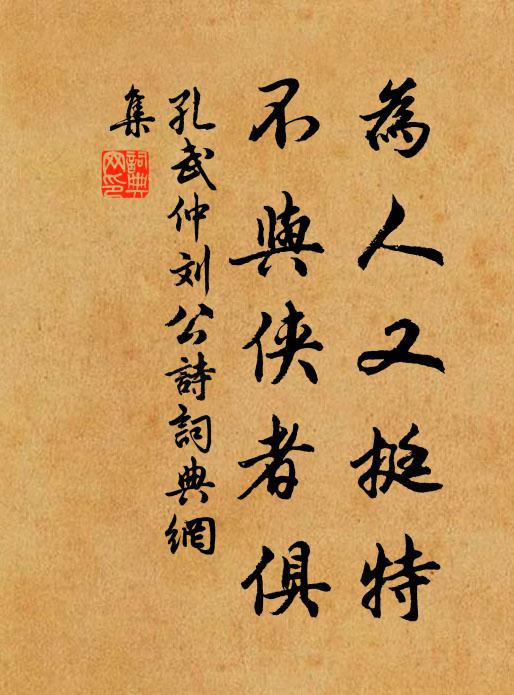 為人又挺特
不與俠者俱
孔武仲刘公詩詞典網
集
詞典網印